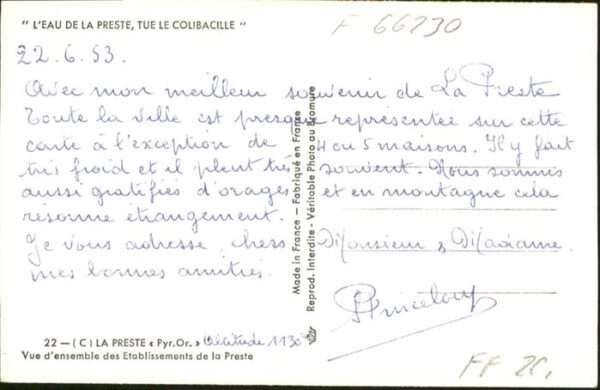 " L'EAU DE LA PRESTE, TUE LE COLIBACILLE "
F 66230
22.6.53.
Avec mon meilleur souvenir de La Preste
Toute la ville est presque représentée sur cette
carte à l'exception de 4 ou 5 maisons. Il y fait
très froid et il pleut très souvent. Nous sommes
aussi gratifiés d'orages et en montagne cela
résonne étrangement.
Je vous adresse, chers Monsieur & Madame
mes bonnes amitiés
22 — (C) LA PRESTE « Pyr.Or. » Altitude 1130
Vue d'ensemble des Etablissements de la Preste
Made in France — Fabriqué en France
Reprod. Interdite - Véritable Photo au Bromure
FF 20,